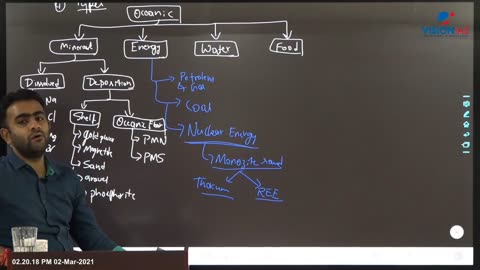 Types
Oceanic
VISION IAS
Mineral
Energy
Water
Food
Dissolved
Deposition
Petroleum
& Gas
Na
Cl
Coal
Shelf
Oceanic floor
Nuclear Energy
Magnetite
PMN
Sand
PMS
Monozite sand
gravel
Thorium
REE
phosphorite
02.20.18 PM 02-Mar-2021